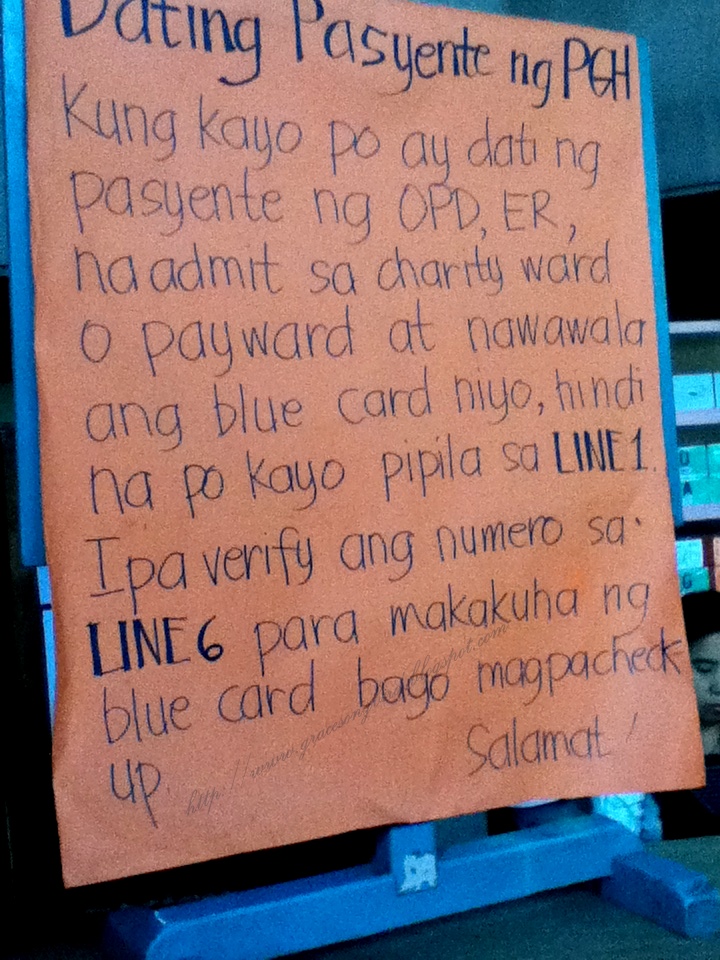 Dating Pasyente ng PGH
Kung kayo po ay dati ng
pasyente ng OPD, ER,
na admit sa charity ward
o payward at nawawala
ang blue card niyo, hindi
na po kayo pipila sa LINE 1.
Ipa verify ang numero sa
LINE 6 para makakuha ng
blue card bago magpacheck
up.
Salamat!